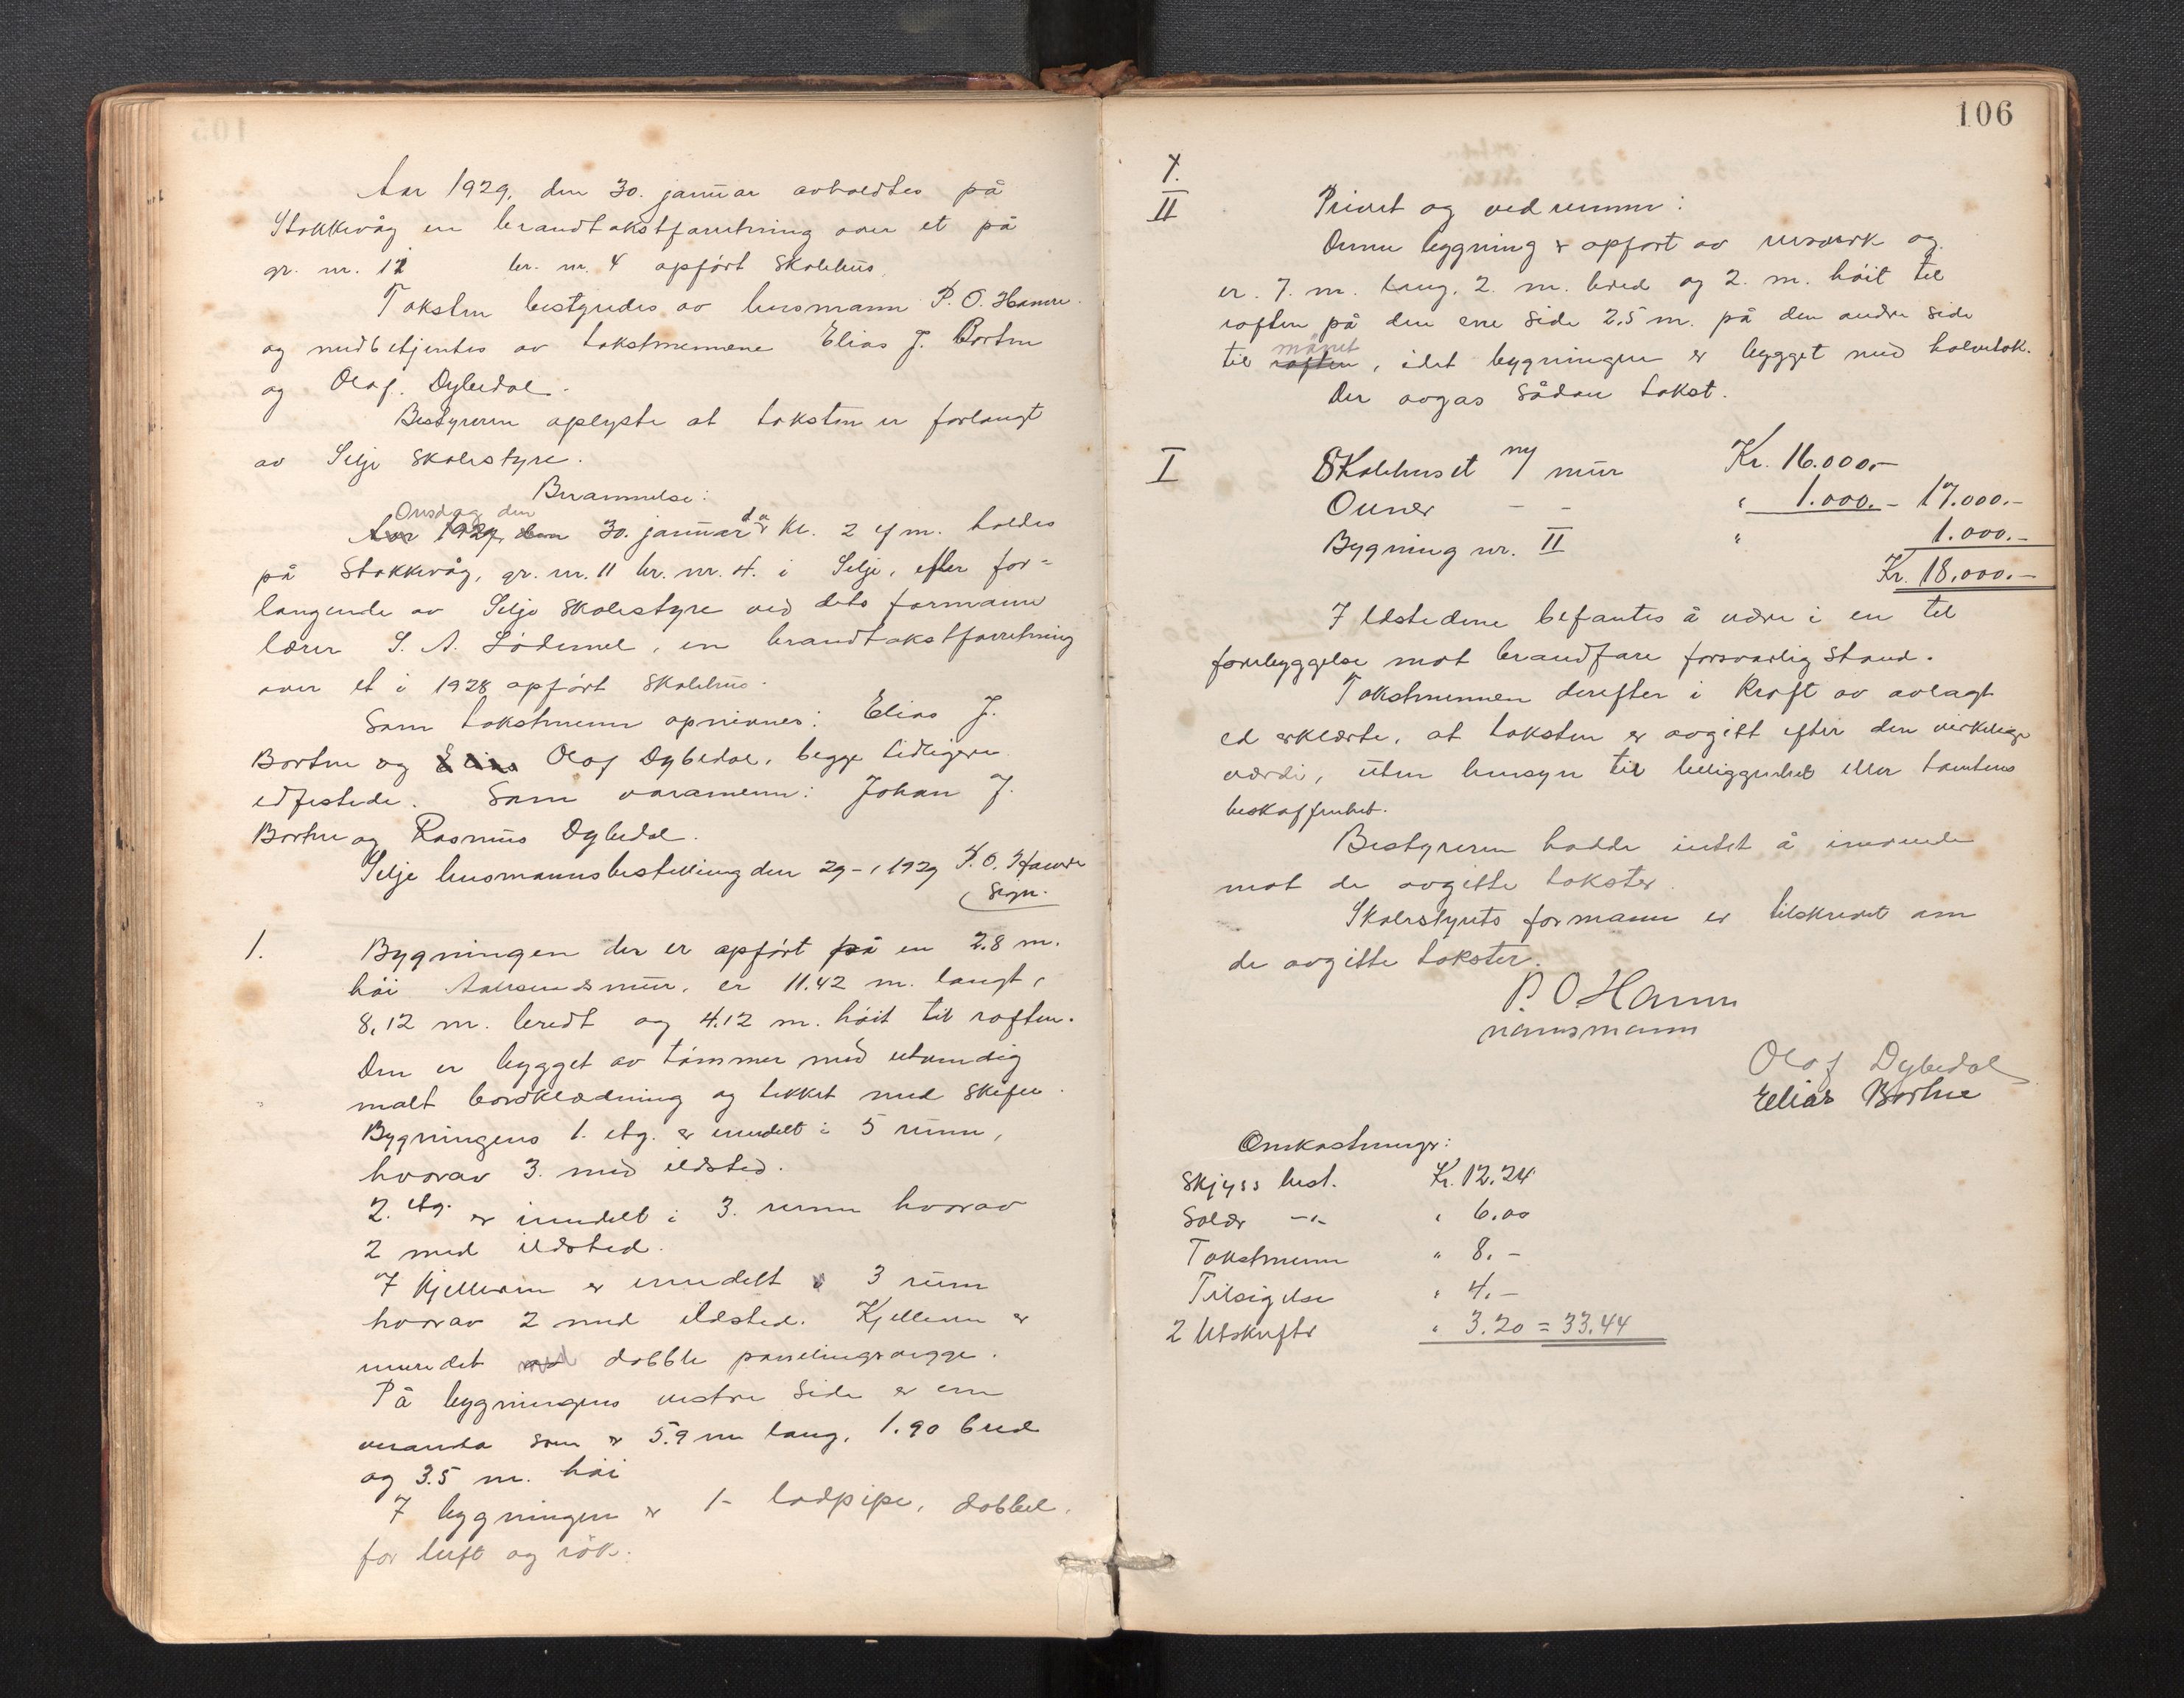 Aar 1929, den 30. januar avholdtes på
Stokkevåg en brandtakstforretning over et på
gr. nr. 11 br. nr. 4 opført skolehus.
Taksten bestyredes av lensmann P. O. Hamre
og medbetjentes av takstmennene Elias J. Bortne
og Olaf Dybedal.
Bestyreren oplyste at taksten er forlangt
av Selje skolestyre.
Berammelse:
Onsdag den
Aar 1929, den 30. januar d. a. kl. 2 efm. holdes
på Stokkevåg, gr. nr. 11 br. nr. 4. i Selje, efter for=
langende av Selje skolestyre ved dets formann
lærer S. A. Lødemel, en brandtakstforretning
over et i 1928 opført skolehus.
Som takstmenn opnevnes: Elias J.
Bortne og Elias Olaf Dybedal, begge tidligere
edfestede. Som varamenn: Johan J.
Bortne og Rasmus Dybedal.
Selje lensmannsbestilling den 29-1 1929 P. O. Hamre
sign.
1. Bygningen der er opført på en 2.8 m.
høi mur, er 11.42 m. langt,
8,12 m. bredt og 4.12 m. høit til raften.
Den er bygget av tømmer med utvendig
malt bordklædning og tekket med skifer.
Bygningens 1. etg. er inndelt i 5 rum,
hvorav 3. med ildsted.
2. etg. er inndelt i 3. rum hvorav
2 med ildsted.
I kjelleren er inndelt 3 rum
hvorav 2 med ildsted. Kjelleren er
innredet med dobble panelingsvegge.
På bygningens vestre side er en
veranda som er 5.9 m lang, 1.90 bred
og 3.5 m. høi
I bygningen er 1- lodpipe, dobbel,
for luft og røk.
106
II Privet og vedrummer:
Denne bygning er opført av
er. 7. m. lang, 2. m. bred og 2. m. høit til
raften på den ene side 2,5 m. på den andre side
mønet
til raften, idet bygningen er bygget med halvtak.
Der avgas sådan takst.
I Skolehuset m/ mur Kr. 16.000.-
Ovner - - " 1.000.- 17.000.-
Bygning nr. II " 1.000.-
Kr. 18.000.-
Ildstedene befantes å være i en til
forebyggelse mot brandfare forsvarlig stand.
Takstmennen derefter i kraft av avlagt
ed erklærte, at taksten er avgitt efter den virkelige
værdi, uten hensyn til beliggenhet eller tomtens
beskaffenhet.
Bestyreren hadde intet å innvende
mot de avgitte takster.
Skolestyrets formann er tilskrevet om
de avgitte takster.
P. O. Hamre
lensmann
Olaf Dybedal
Elias Bortne
Omkostninger:
Skyss best. Kr. 12.24
Salær -"- " 6.00
Takstmenn " 8.-
Tilsigelse " 4.-
2 Utskrifter " 3.20 = 33.44